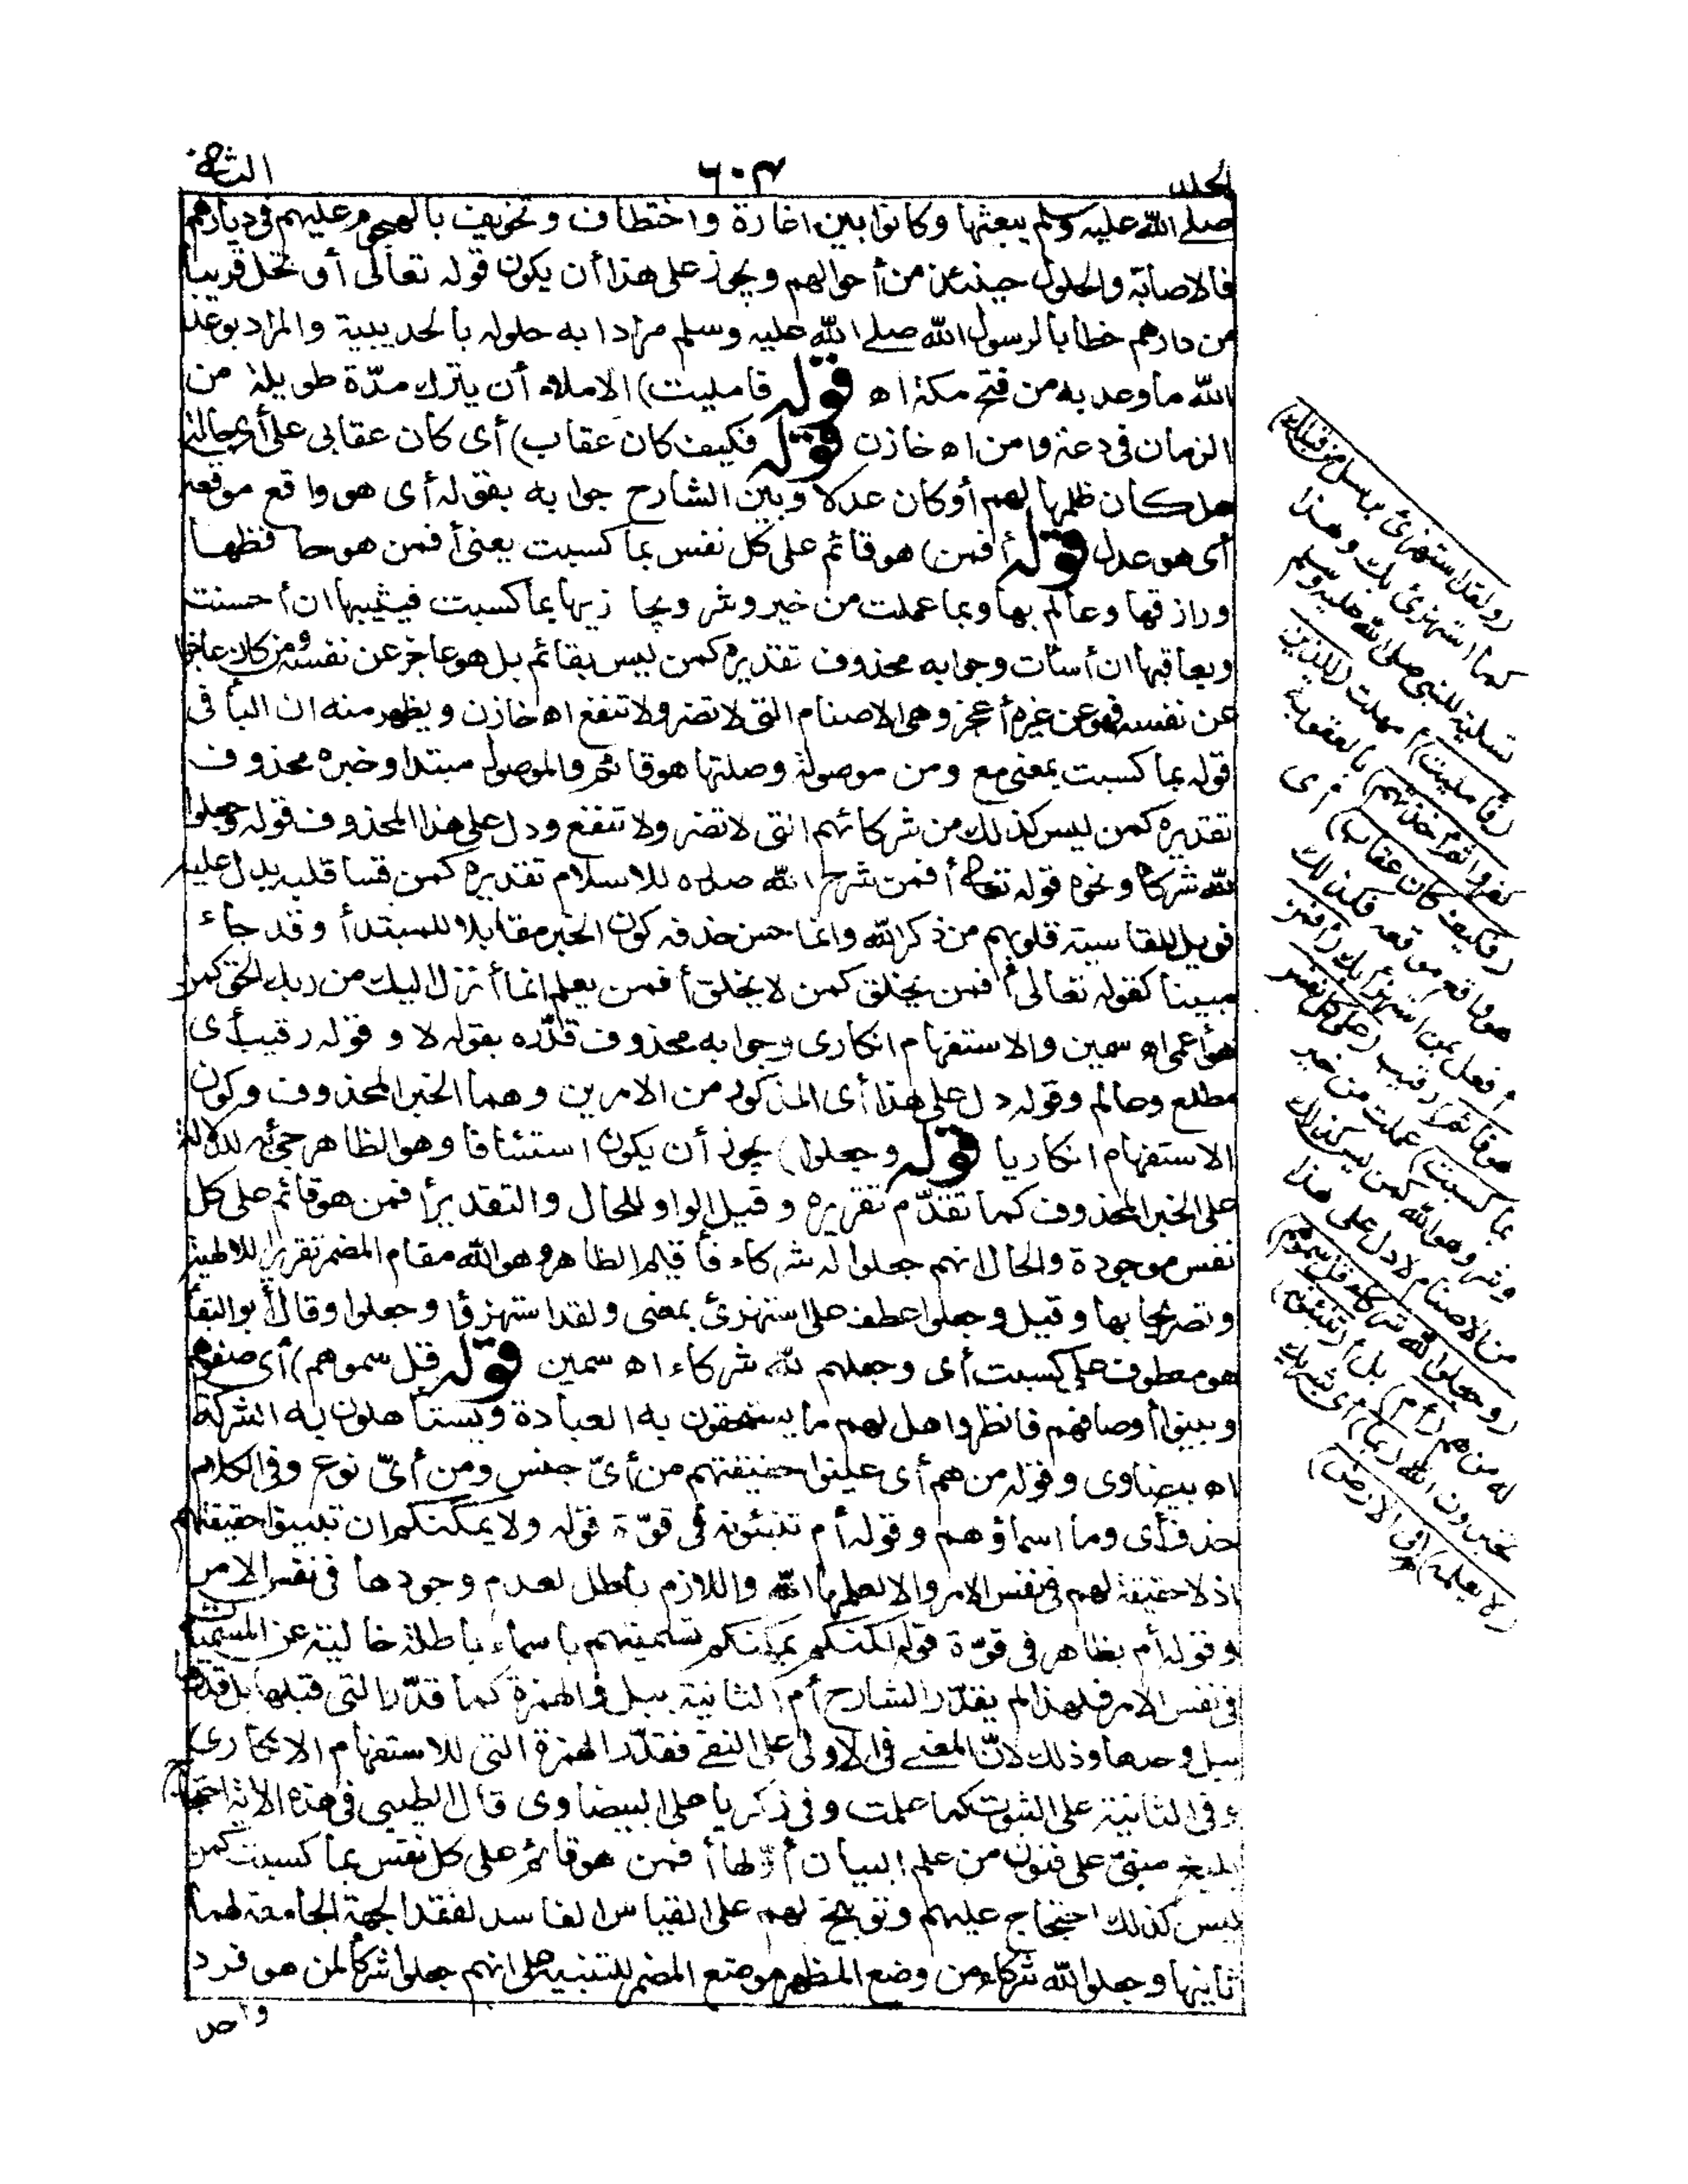 الجلد
٦٠٣
الثانی
صلے الله عليه وسلم يبعثها وكانوا بين اغارة واختطاف وتخويف بالهجوم عليهم فى ديارهم
فالاصابة والحلول حينئذ من أحوالهم ويجوز على هذا أن يكون قوله تعالى أو تحل قريبا
من دارهم خطابا لرسول الله صلے الله عليه وسلم مرادا به حلوله بالحديبية والمراد بوعد
الله ما وعد به من فتح مكة اه قوله فامليت) الاملاء أن يترك مدّة طويلة من
الزمان فى دعة وامن اه خازن قوله فكيف كان عقاب) أى كان عقابى على أى حالة
هل كان ظلما لهم أو كان عدلا وبين الشارح جوابه بقوله أى هو واقع موقعه
أى هو عدل قوله أفمن) هو قائم على كل نفس بما كسبت يعنى أفمن هو حافظها
ورازقها وعالم بها وبما عملت من خير وشر ويجازيها بما كسبت فيثيبها ان أحسنت
ويعاقبها ان أسأت وجوابه محذوف تقديره كمن ليس بقائم بل هو عاجز عن نفسه ومن كان عاجزا
عن نفسه فهو عن غيره أعجز وهى الاصنام التى لا تضر ولا تنفع اه خازن ويظهر منه ان البأ فى
قوله بما كسبت بمعنى مع ومن موصولة وصلتها هو قائم والموصول مبتدا وخبره محذوف
تقديره كمن ليس كذلك من شركائهم التى لا تضر ولا تنفع ودل على هذا المحذوف قوله وجعلوا
لله شركاء ونحوه قوله تعالى أفمن شرح الله صدره للاسلام تقديره كمن قسا قلبه يدل عليه
فويل للقاسية قلوبهم من ذكر الله وانما حسن حذفه كون الخبر مقابلا للمبتدأ وقد جاء
مبينا كقوله تعالى أفمن يخلق كمن لا يخلق أفمن يعلم انما أنزل اليك من ربك الحق كمن
هو أعمى اه سمين والاستفهام انكارى وجوابه محذوف قدّره بقوله لا وقوله رقيب أى
مطلع وعالم وقوله دل على هذا أى المذكور من الامرين وهما الخبر المحذوف وكون
الاستفهام انكاريا قوله وجعلوا) يجوز أن يكون استئنافا وهو الظاهر جئ به للدلالة
على الخبر المحذوف كما تقدّم تقريره وقيل الواو للحال والتقدير أفمن هو قائم على كل
نفس موجودة والحال انهم جعلوا له شركاء فأقيم الظاهر وهو الله مقام المضمر تقريرا للالهية
وتصريحا بها وقيل وجعلوا عطف على استهزئ بمعنى ولقد استهزؤا وجعلوا وقال أبو البقأ
هو معطوف على كسبت أى وجعلهم لله شركاء اه سمين قوله قل سموهم) أى صفوهم
وبينوا أوصافهم فانظروا هل لهم ما يستحقون به العبادة ويستأهلون به الشركة
اه بيضاوى وقوله من هم أى عينوا حقيقتهم من أىّ جنس ومن أىّ نوع وفى الكلام
حذف أى وما اسماؤهم وقوله أم تنبئونه فى قوّة قوله ولا يمكنكم ان تبينوا حقيقتهم
اذ لا حقيقة لهم فى نفس الامر والا لعلمها الله واللازم باطل لعدم وجودها فى نفس الامر
وقوله أم بظاهر فى قوّة قوله لكنكم يمكنكم تسميتهم باسماء باطلة خالية عن المسميات
فى نفس الامر فلهذا لم يقدّر الشارح أم الثانية ببل والهمزة كما قدّر بالتى قبلها بل قدرها
ببل وحدها وذلك لانّ المعنے فى الاولى على النفے فقدّر الهمزة التى للاستفهام الانكارى
وفى الثانية على الثبوت كما علمت وفى زكريا على البيضاوى قال الطيبى فى هذه الاية احتجاج
بليغ مبنى على فنون من علم البيان أوّلها أفمن هو قائم على كل نفس بما كسبت كمن
ليس كذلك احتجاج عليهم وتوبيخ لهم على القياس الفاسد لفقد الجهة الجامعة لهما
ثانيها وجعلوا لله شركاء من وضع المظهر موضع المضمر للتنبيه على انهم جعلوا شركأ لمن هو فرد
واحد
(ولقد استهزئ برسل من قبلك)
كما استهزئ بك وهذا
تسلية للنبى صلى الله عليه وسلم
(فامليت) أمهلت (للذين
كفروا ثم أخذتهم) بالعقوبة
(فكيف كان عقاب) أى
هو واقع موقعه فكذلك
أفعل بمن استهزأ بك (أفمن
هو قائم) رقيب (على كل نفس
بما كسبت) عملت من خير
وشر وهو الله كمن ليس كذلك
من الاصنام لا دل على هذا
(وجعلوا لله شركاء قل سموهم)
له من هم (أم) بل أ (تنبئونه)
تخبرون الله (بما) أى شريك
(لا يعلمـ)ـه (فى الارض)